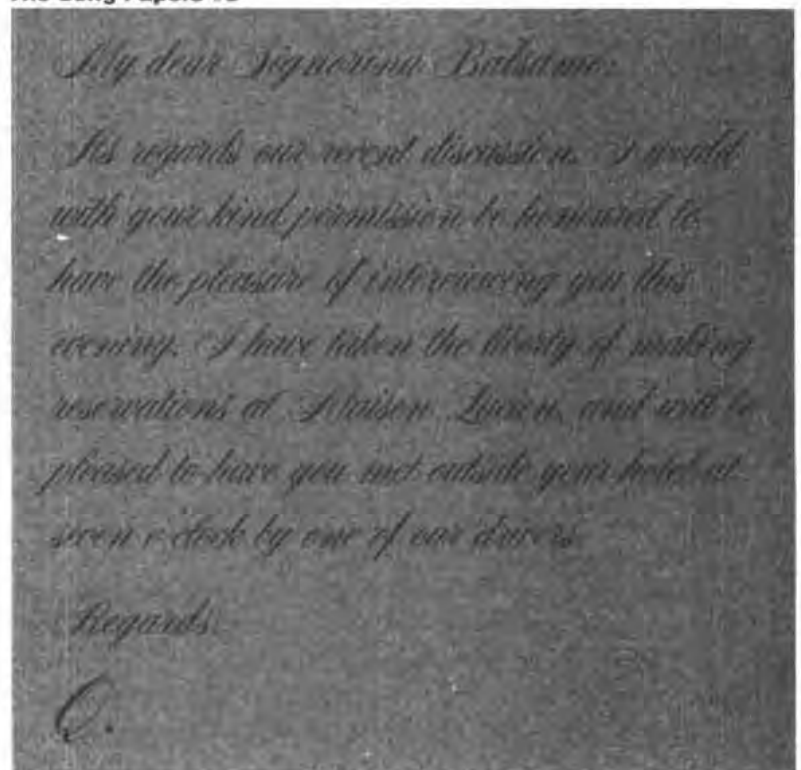 My dear Signorina Balsamo:
As regards our recent discussion. I would
with your kind permission be honoured to
have the pleasure of interviewing you this
evening. I have taken the liberty of making
reservations at Maison Lucien, and will be
pleased to have you met outside your hotel at
seven o'clock by one of our drivers.
Regards,
Q.